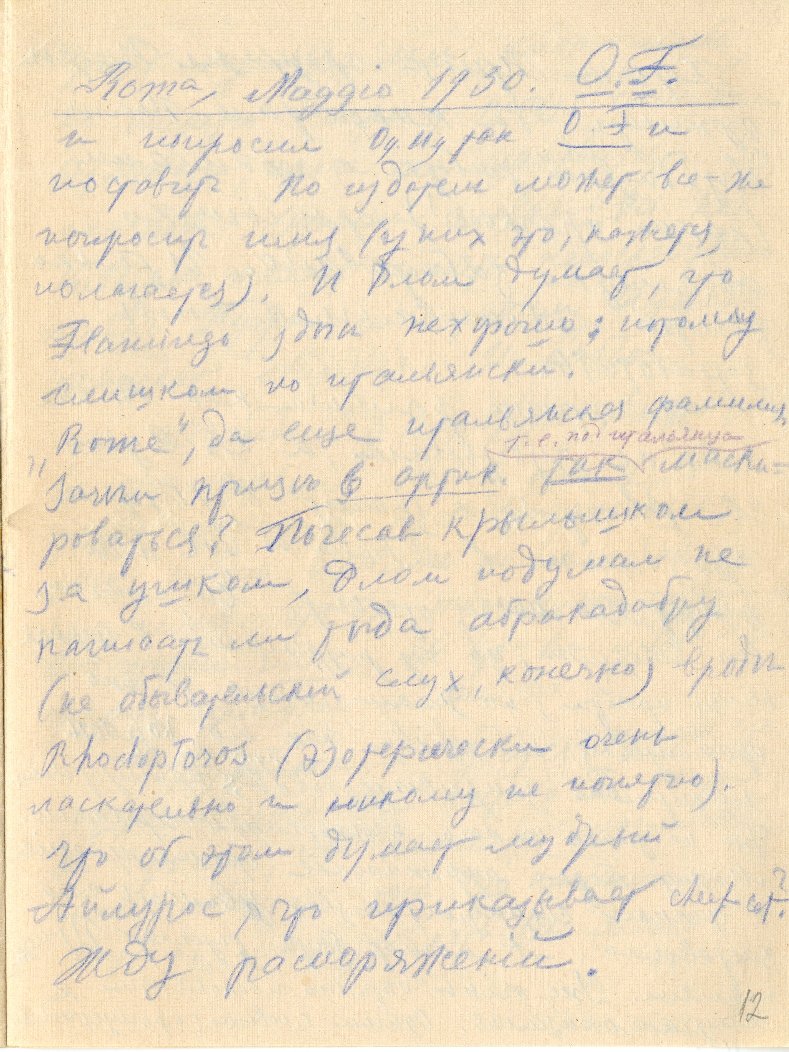 Roma, Maggio 1930. O.F.
и попросил Одну так О. F и
поставить. Но издатель может все-же
попросить имя (у них это, кажется,
полагается). И Флом думает, что
Фламинго здесь нехорошо: потому
слишком по итальянски.
"Rome", да еще итальянская фамилия,
т.е. под итальянца
Зачем птице в арт. так маски-
роваться? Почесав крылышком
за ушком, Флом подумал не
написать ли тогда абракадабру
(не обывательский слух, конечно) вроде
Rhodopteros (эзотерически очень
ласкательно и никому не понятно).
Что об этом думает мудрый
Айлурос, что приказывает chef-cat?
Жду распоряженiй.
12